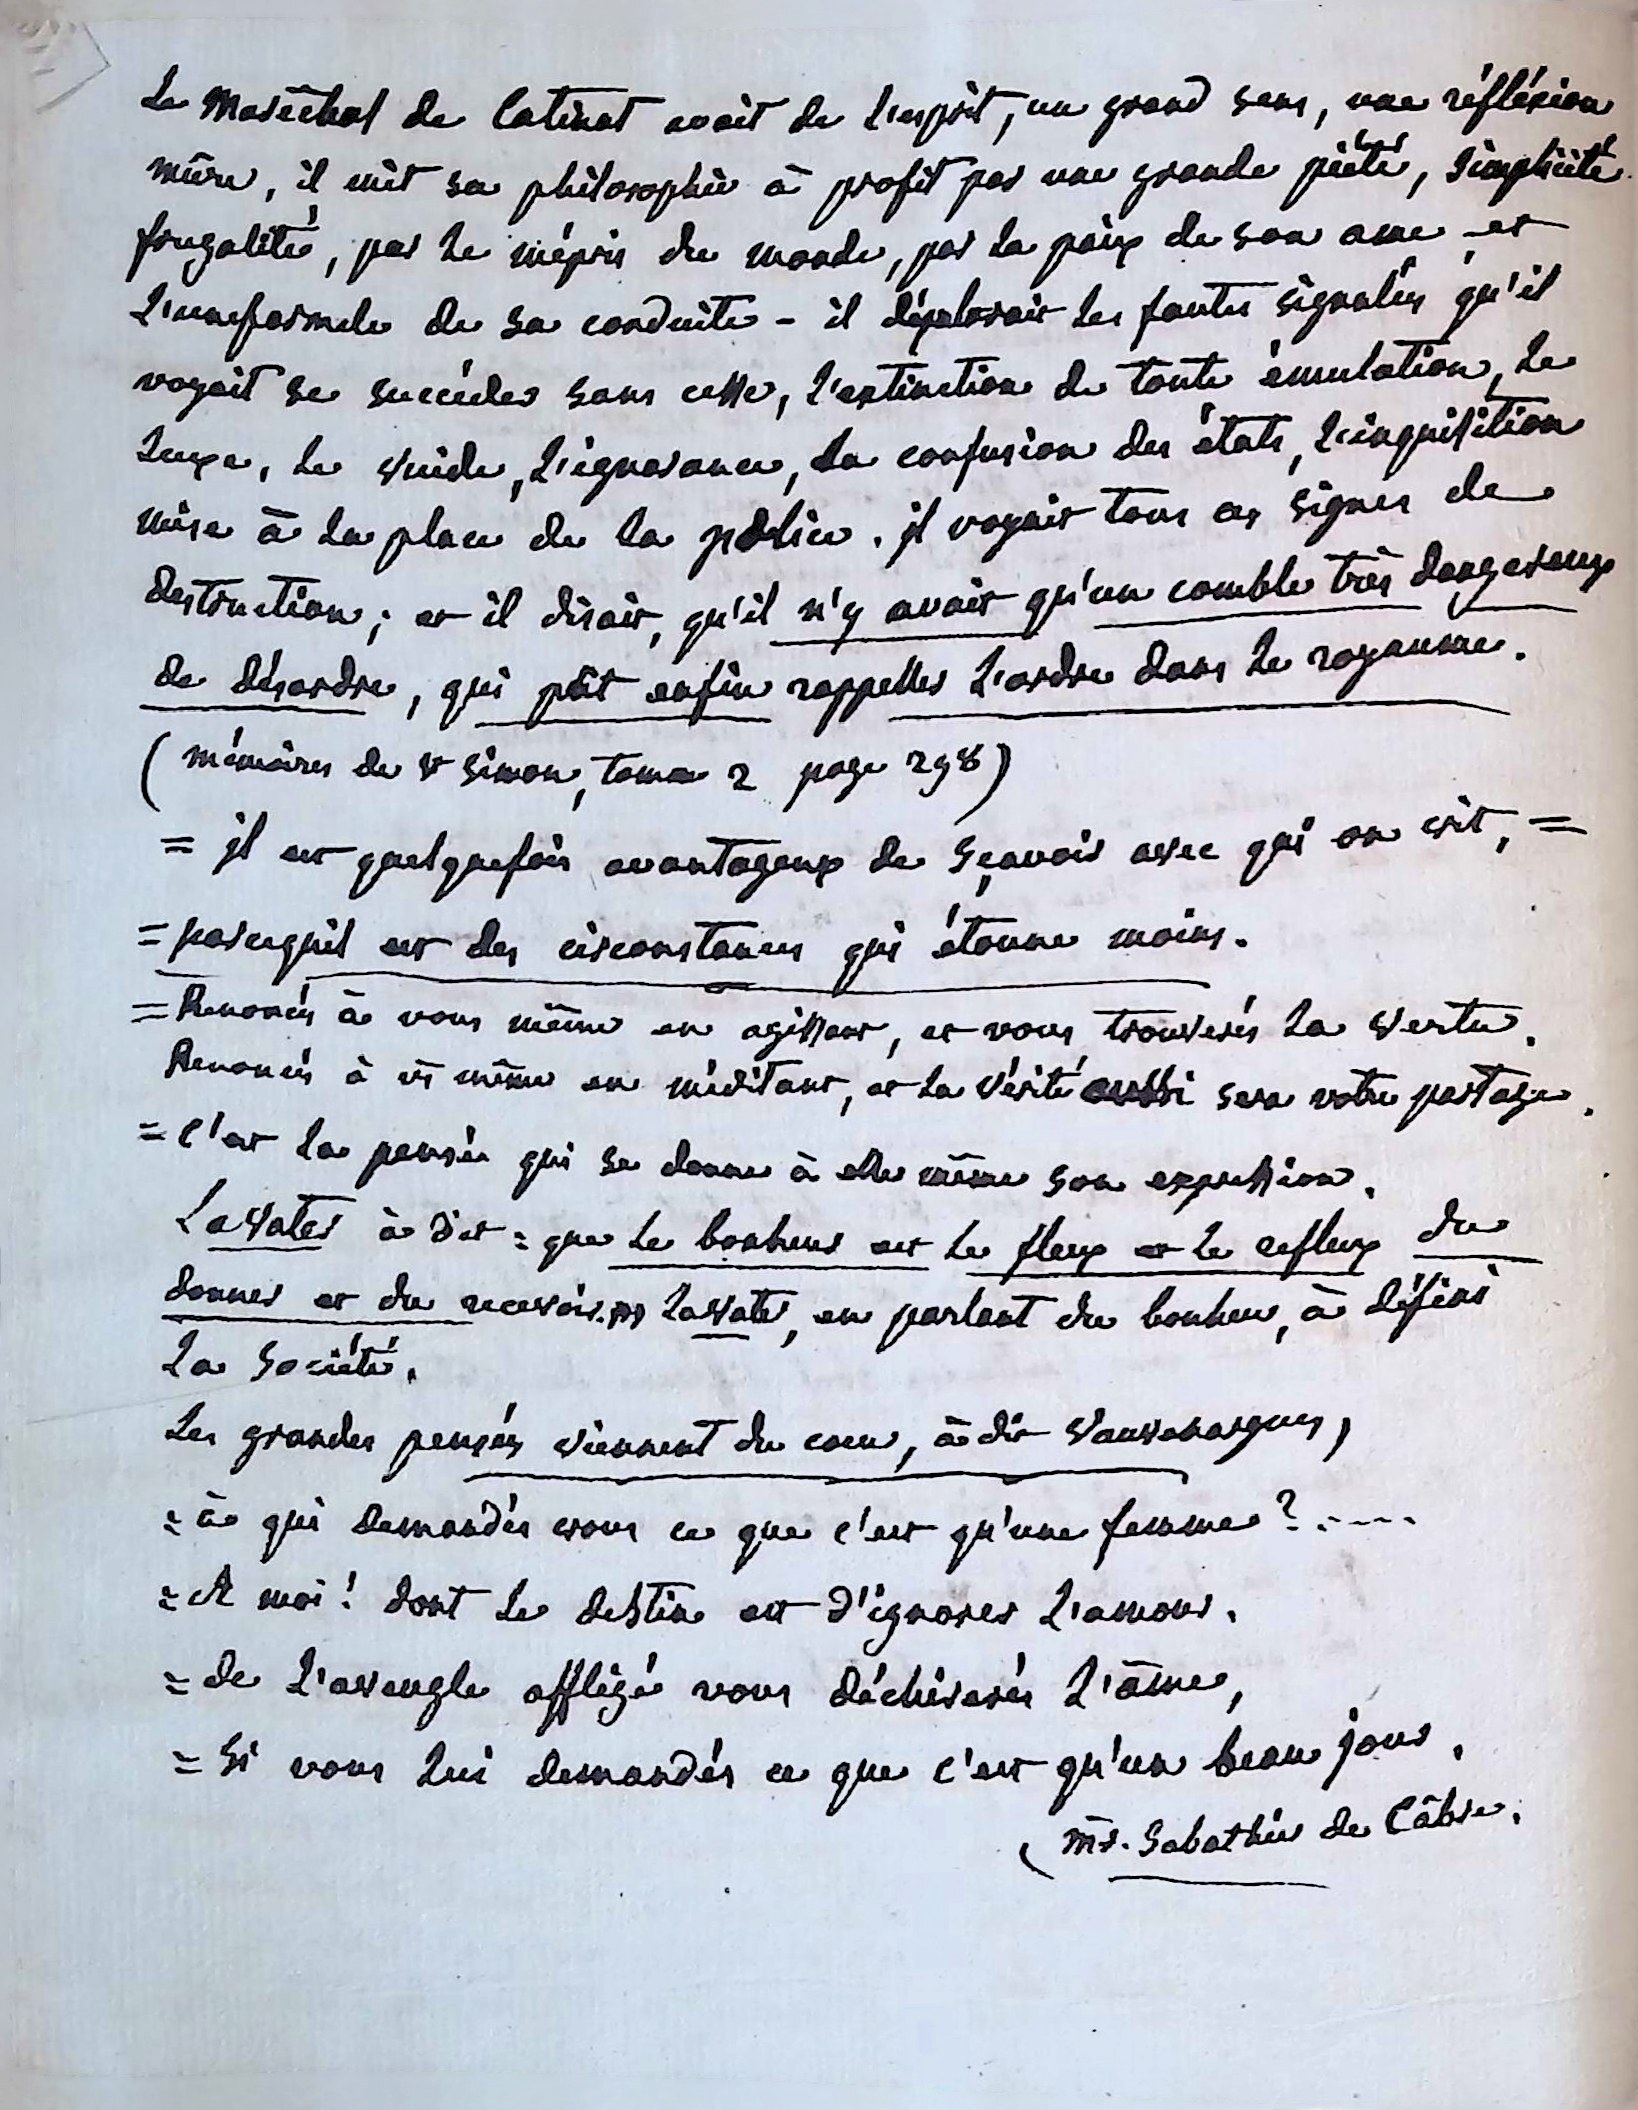 Le Maréchal de Catinat avoit de L'esprit, un grand sens, une réfléxion
mûre, il mit sa philosophie à profit par une grande piété, Simplicité
frugalité, par Le mépris du monde, par La paix de son ame et
L'uneformele de sa conduite - il déploroit Les fautes signalées qu'il
voyoit se succéder sans cesse, L'extinction de toute émulation, Le
Luxe, Le vuide, L'ignorance, La confusion des états, L'inquisition
mise à La place de La police. il voyoit tous ces signes de
destruction; et il disoit, qu'il n'y avoit qu'un comble très dangereux
de désordre, qui pût enfin rappeller L'ordre dans Le royaume.
(mémoires de St Simon, tome 2 page 298)
= il est quelquefois avantageux de sçavoir avec qui on vit, =
= parcequ'il est des circonstances qui étonne moins.
= Renoncés à vous même en agissant, et vous trouverés La vertu.
Renoncés à vs même en méditant, et La vérité aussi sera votre partage.
= C'est La pensée qui se donne à elle même son expression.
Lavater à dit = que Le bonheur est Le flux et Le reflux du
donner et du recevoir. Lavater, en parlant du bonheur, à défini
La Société.
Les grandes pensées viennent du coeur, à dit Vauvenargues,
= à qui demandés vous ce que c'est qu'une femme? .----
= A moi! dont Le destin est d'ignorer L'amour.
= de L'aveugle affligé vous déchirerés L'âme,
= Si vous Lui demandés ce que c'est qu'un beau jour.
( mr. Sabathier de Câbre.